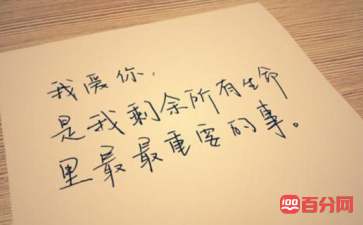 我爱你，
是我剩余所有生命
里最最重要的事。
100 百分网